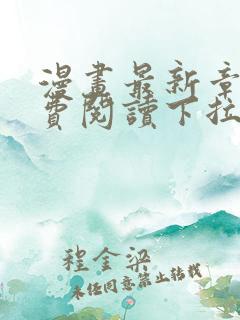 漫畫最新章
費閱讀下拉
程金梁
未經同意禁止轉載